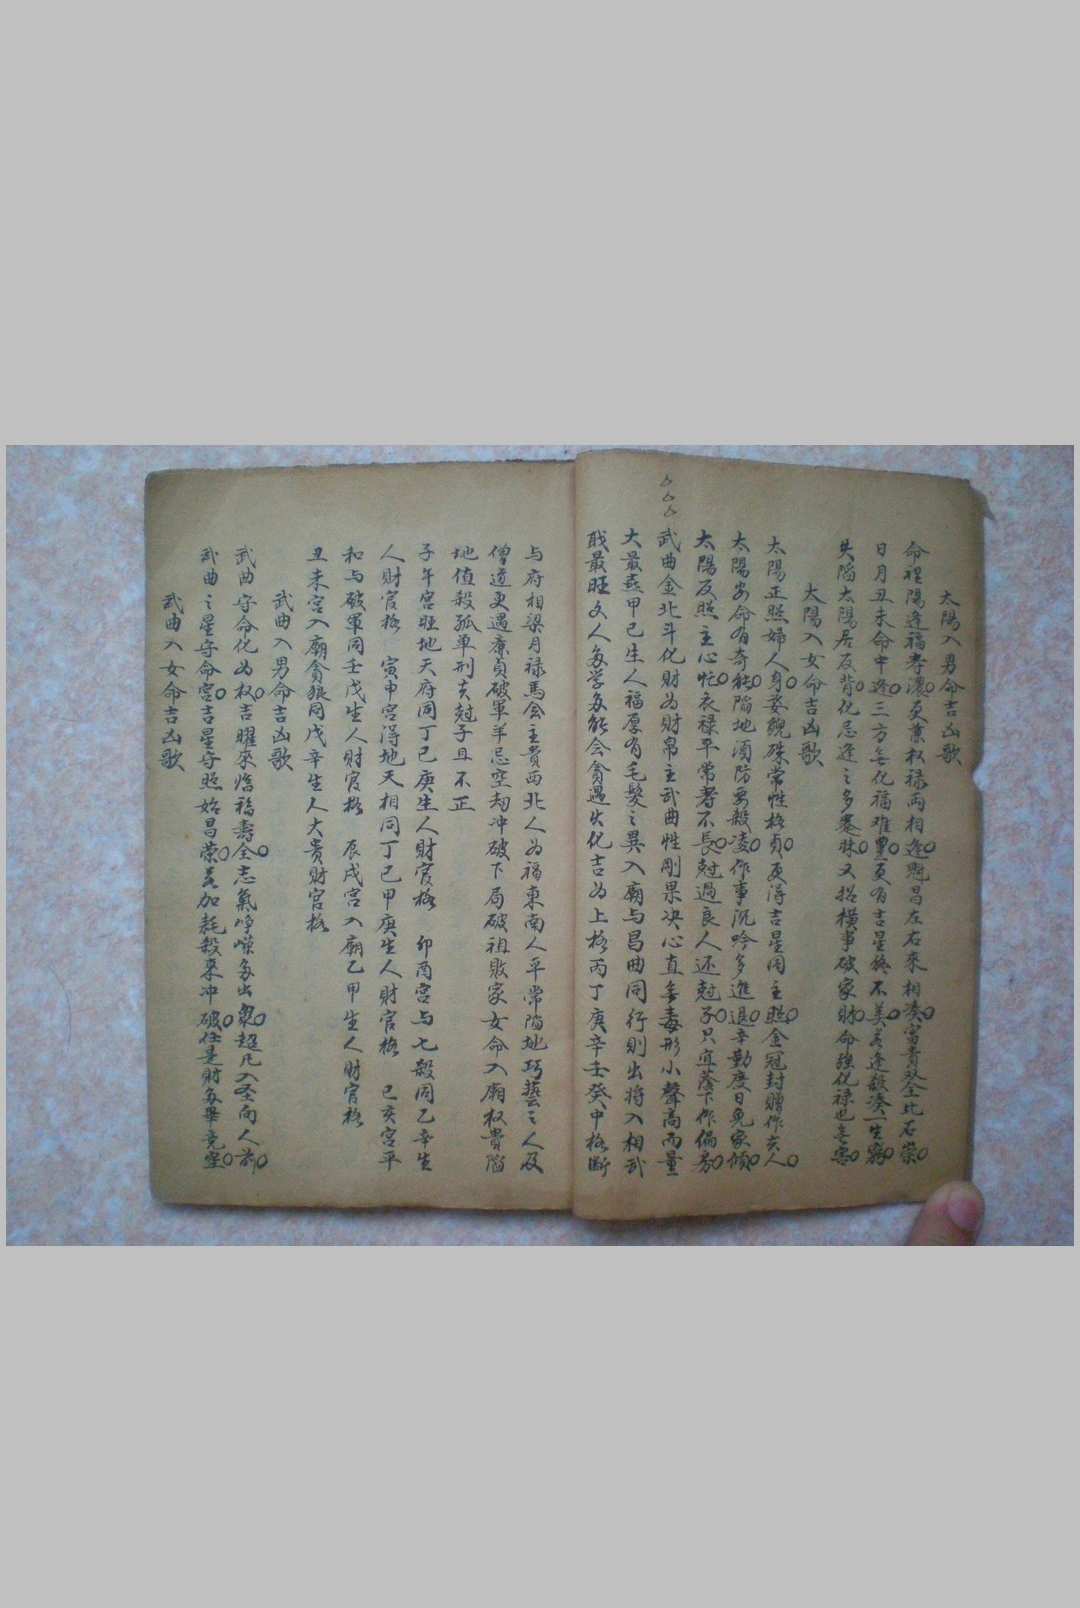 太陽入男命吉凶歌
命裡陽逢福壽濃○更兼权禄两相逢○魁昌左右來相凑○富貴双全比石崇○
日月丑未命中逢○三方無化福难豊○更有吉星終不美○若逢殺凑一生窮○
失陷太陽居反背○化忌逢之多蹇昧○又招横事破家財○命強化禄也無害○
太陽入女命吉凶歌
太陽正照婦人身○姿貌殊常性格貞○更得吉星同主照○金冠封贈作夫人○
太陽安命有奇能○陷地須防要殺凌○作事沉吟多進退○辛勤度日免家傾○
太陽反照主心忙○衣禄平常寿不長○尅過良人还尅子○只宜蔭下作偏房○
武曲金北斗化財为財帛主武曲性剛果决心直無毒形小聲高而量
大最喜甲己生人福厚有毛髮之異入廟与昌曲同行則出将入相武
職最旺文人多学多能会貪遇火化吉为上格丙丁庚辛壬癸中格断
与府相梁月禄馬会主貴西北人为福東南人平常陷地巧藝之人及
僧道更遇廉貞破軍羊忌空刼冲破下局破祖敗家女命入廟权貴陷
地值殺孤单刑夫尅子且不正
子午宫旺地天府同丁己庚生人財官格 卯酉宫与七殺同乙辛生
人財官格 寅申宫得地天相同丁己甲庚生人財官格 巳亥宫平
和与破軍同壬戊生人財官格 辰戌宫入廟乙甲生人財官格
丑未宫入廟貪狼同戊辛生人大貴財官格
武曲入男命吉凶歌
武曲守命化为权○吉曜來臨福壽全○志氣峥嵘多出衆○超凡入圣向人前○
武曲之星守命宫○吉星守照始昌榮○若加耗殺來冲破○任是財多畢竟空○
武曲入女命吉凶歌